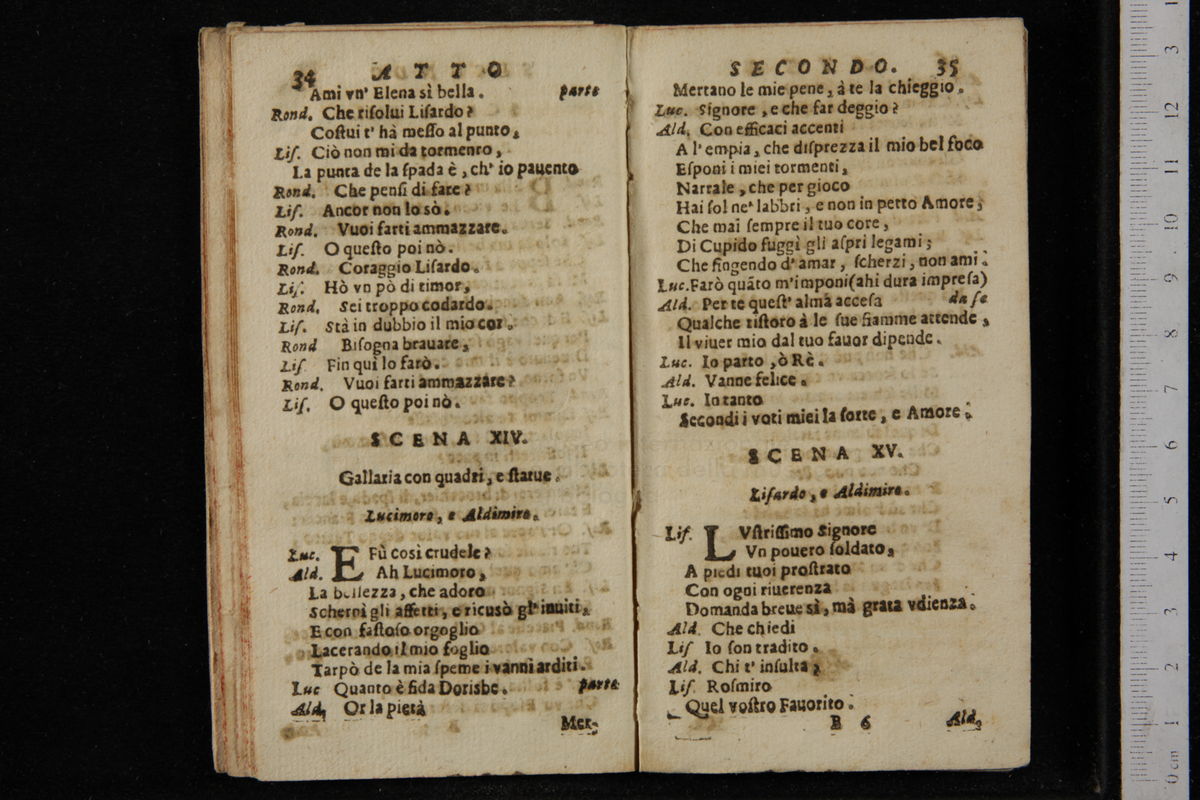 34 ATTO
Ami vn' Elena sì bella. parte
Rond. Che riſolui Liſardo?
Coſtui t' hà meſſo al punto,
Liſ. Ciò non mi da tormenro,
La punta de la ſpada è, ch' io pauento
Rond. Che penſi di fare?
Liſ. Ancor non lo sò.
Rond. Vuoi farti ammazzare.
Liſ. O queſto poi nò.
Rond. Coraggio Liſardo.
Liſ. Hò vn pò di timor,
Rond. Sei troppo codardo.
Liſ. Stà in dubbio il mio cor.
Rond Biſogna brauare,
Liſ Fin quì lo farò.
Rond. Vuoi farti ammazzare?
Liſ. O queſto poi nò.
SCENA XIV.
Gallaria con quadri, e ſtatue.
Lucimoro, e Aldimiro.
Luc. E Fù così crudele?
Ald. Ah Lucimoro,
La bellezza, che adoro
Schernì gli affetti, e ricusò gl' inuiti,
E con faſtoſo orgoglio
Lacerando il mio foglio
Tarpò de la mia ſpeme i vanni arditi.
Luc Quanto è fida Dorisbe. parte
Ald, Or la pietà
Mer-
SECONDO. 35
Mertano le mie pene, à te la chieggio.
Luc. Signore, e che far deggio?
Ald. Con efficaci accenti
A l' empia, che diſprezza il mio bel foco
Eſponi i miei tormenti,
Narrale, che per gioco
Hai ſol ne' labbri, e non in petto Amore,
Che mai ſempre il tuo core,
Di Cupido fuggì gli aſpri legami;
Che fingendo d' amar, ſcherzi, non ami.
Luc. Farò quãto m'imponi (ahi dura impreſa)
Ald. Per te queſt' alma acceſa da ſe
Qualche riſtoro à le ſue fiamme attende,
Il viuer mio dal tuo fauor dipende.
Luc. Io parto, ò Rè.
Ald. Vanne felice.
Luc. Intanto
Secondi i voti miei la ſorte, e Amore.
SCENA XV.
Liſardo, e Aldimiro.
Liſ. LVſtriſſimo Signore
Vn pouero ſoldato,
A piedi tuoi proſtrato
Con ogni riuerenza
Domanda breue sì, mà grata vdienza.
Ald. Che chiedi
Liſ Io ſon tradito.
Ald. Chi t' inſulta?
Liſ. Roſmiro
Quel voſtro Fauorito.
B 6 Ald,
0 cm 1 2 3 4 5 6 7 8 9 10 11 12 3